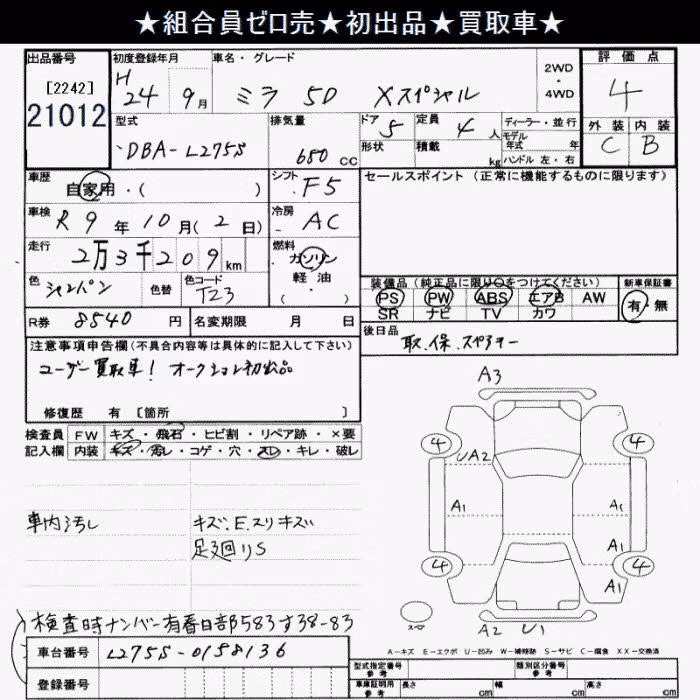 ★組合員ゼロ売★初出品★買取車★
出品番号 初度登録年月 車名・グレード 2WD・4WD 評価点
[2242] H24 9月 ミラ 5D Xスペシャル 4
21012
型式 排気量 ドア 5 定員 4人 ディーラー・並行 外装 内装
DBA-L275S 650CC 形状 積載 kg モデル年式 年 C B
ハンドル 左・右
車歴 自家用・( ) シフト F5 セールスポイント (正常に機能するものに限ります)
車検 R9年10月(2日) 冷房 AC
走行 2万3千209km 燃料 ガソリン
軽油
・( )
色 シャンパン 色替 色コード T23 装備品 (純正品に限り○をつけてください) 新車保証書
PS PW ABS エアB AW 有・無
SR ナビ TV カワ
R券 8540円 名変期限 月 日 後日品
取、保、スペアキー
注意事項申告欄 (不具合内容等は具体的に記入して下さい)
ユーザー買取車! オークション初出品
修復歴 有 [箇所 ]
検査員 FW キズ・飛石・ヒビ割・リペア跡・×要
記入欄 内装 キズ・汚レ・コゲ・穴・スレ・キレ・破レ
A3
4 4
UA2
A1 A1
A1
4 4
A1
車内汚し キズ、E、スリキズ
足廻りS
A2 U1
検査時ナンバー有春日部583す38-83
A-キズ E-エクボ U-凹み W-補修跡 S-サビ C-腐食 XX-交換済
車台番号 L275S-0158136
登録番号
型式指定番号 参考 類別区分番号 参考
車庫証明用 参考 長さ cm 幅 cm 高さ cm